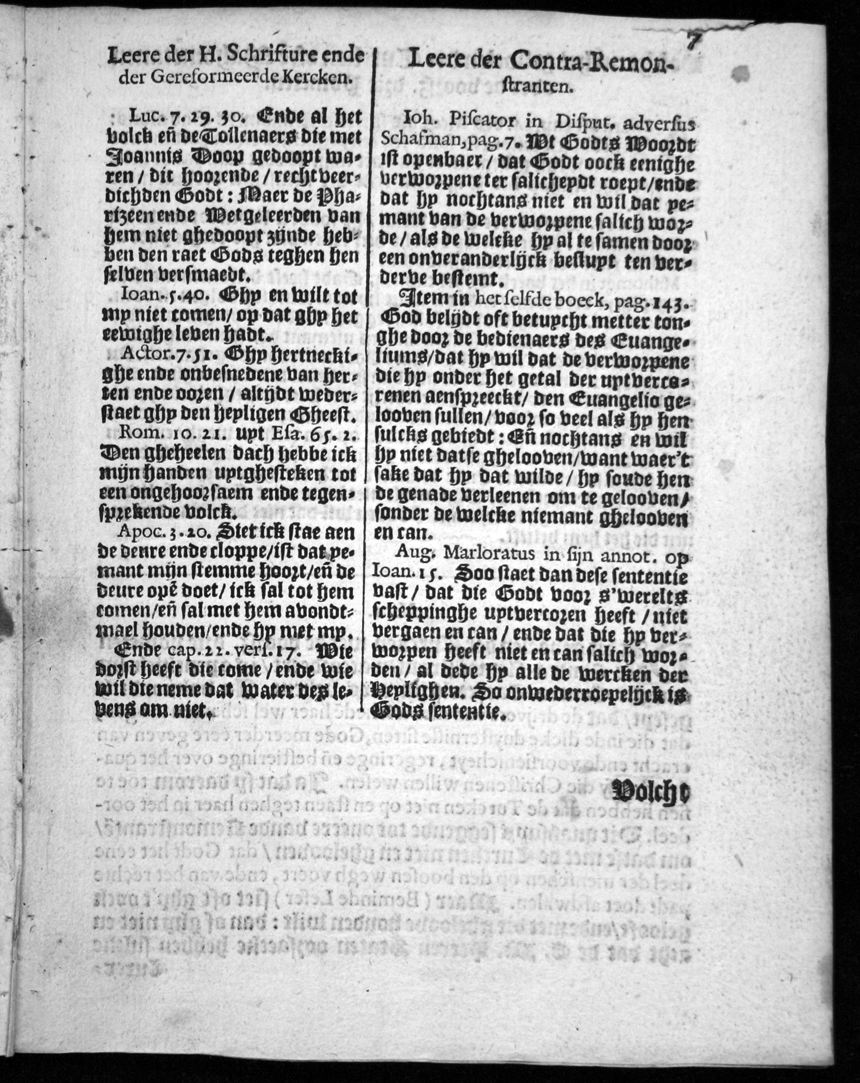 7
Leere der H. Schrifture ende
der Gereformeerde Kercken.
Luc. 7. 29. 30. Ende al het
volck eñ de Tollenaers die met
Joannis Doop gedoopt wa-
ren / dit hoorende / rechtveer-
dichden Godt : Maer de Pha-
rizeen ende Wetgeleerden van
hem niet ghedoopt zijnde heb-
ben den raet Gods teghen hen
selven versmaedt.
Ioan. 5. 40. Ghy en wilt tot
my niet comen / op dat ghy het
eewighe leven hadt.
Actor. 7. 51. Ghy hertnecki-
ghe ende onbesnedene van her-
ten ende ooren / altijdt weder-
staet ghy den heyligen Gheest.
Rom. 10. 21. uyt Esa. 65. 2.
Den gheheelen dach hebbe ick
mijn handen uytghesteken tot
een ongehoorsaem ende tegen-
sprekende volck.
Apoc. 3. 20. Siet ick stae aen
de deure ende cloppe / ist dat ye-
mant mijn stemme hoort / eñ de
deure opē doet / ick sal tot hem
comen / eñ sal met hem avondt-
mael houden / ende hy met my.
Ende cap. 22. vers. 17. Wie
dorst heeft die come / ende wie
wil die neme dat water des le-
vens om niet.
Leere der Contra-Remon-
stranten.
Ioh. Piscator in Disput. adversus
Schafman, pag. 7. Wt Godts Woordt
ist openbaer / dat Godt oock eenighe
verworpene ter salicheydt roept / ende
dat hy nochtans niet en wil dat ye-
mant van de verworpene salich wor-
de / als de welcke hy al te samen door
een onveranderlijck besluyt ten ver-
derve bestemt.
Item in het selfde boeck, pag. 143.
God belijdt oft betuycht metter ton-
ghe door de bedienaers des Euange-
liums / dat hy wil dat de verworpene
die hy onder het getal der uytverco-
renen aenspreeckt / den Euangelio ge-
looven sullen / voor so veel als hy hen
sulcks gebiedt : Eñ nochtans en wil
hy niet datse ghelooven / want waer't
sake dat hy dat wilde / hy soude hen
de genade verleenen om te gelooven /
sonder de welcke niemant ghelooven
en can.
Aug. Marloratus in sijn annot. op
Ioan. 15. Soo staet dan dese sententie
vast / dat die Godt voor s'werelts
scheppinghe uytvercoren heeft / niet
vergaen en can / ende dat die hy ver-
worpen heeft niet en can salich wor-
den / al dede hy alle de wercken der
Heylighen. So onwederroepelijck is
Gods sententie.
Volcht